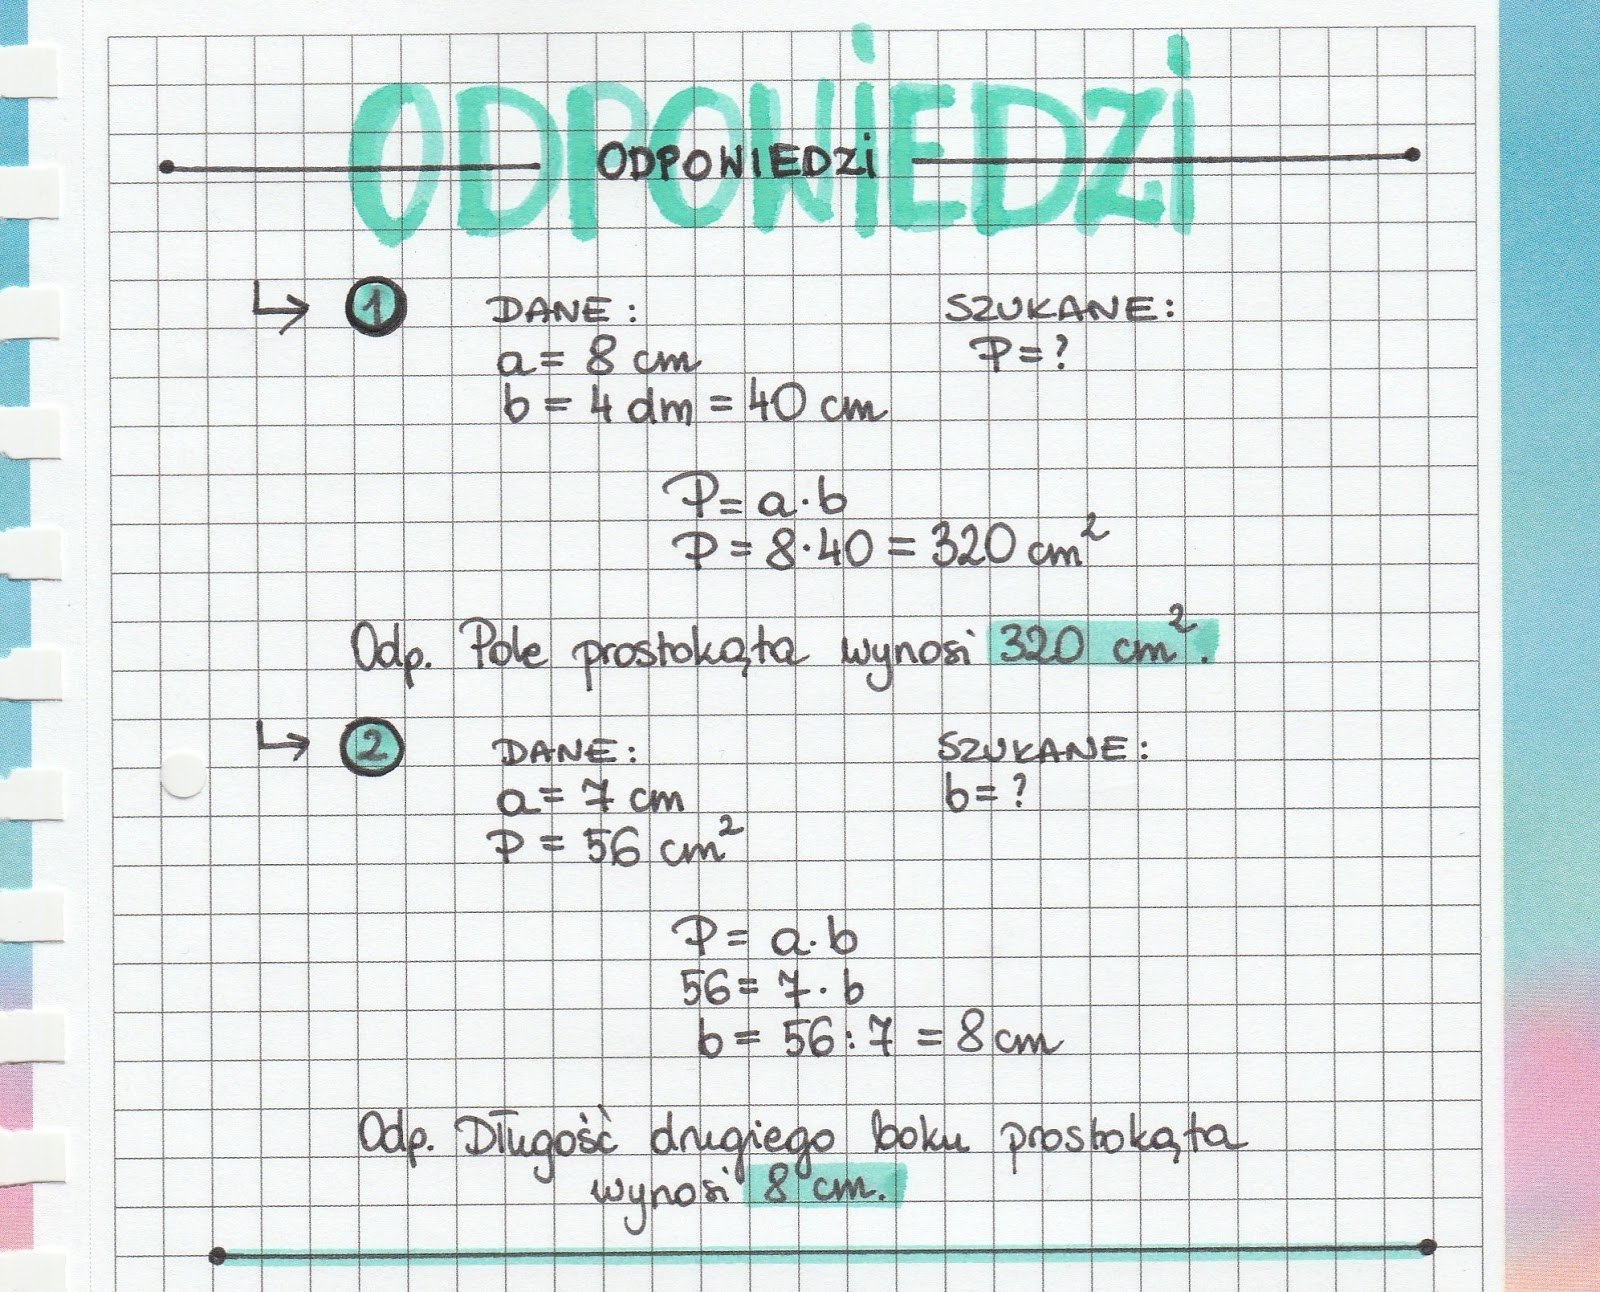 ODPOWiEDZi
ODPOWIEDZi
1 DANE: SZUKANE:
a = 8 cm P = ?
b = 4 dm = 40 cm
P = a·b
P = 8·40 = 320 cm²
Odp. Pole prostokąta wynosi 320 cm².
2 DANE: SZUKANE:
a = 7 cm b = ?
P = 56 cm²
P = a·b
56 = 7·b
b = 56:7 = 8 cm
Odp. Długość drugiego boku prostokąta
wynosi 8 cm.